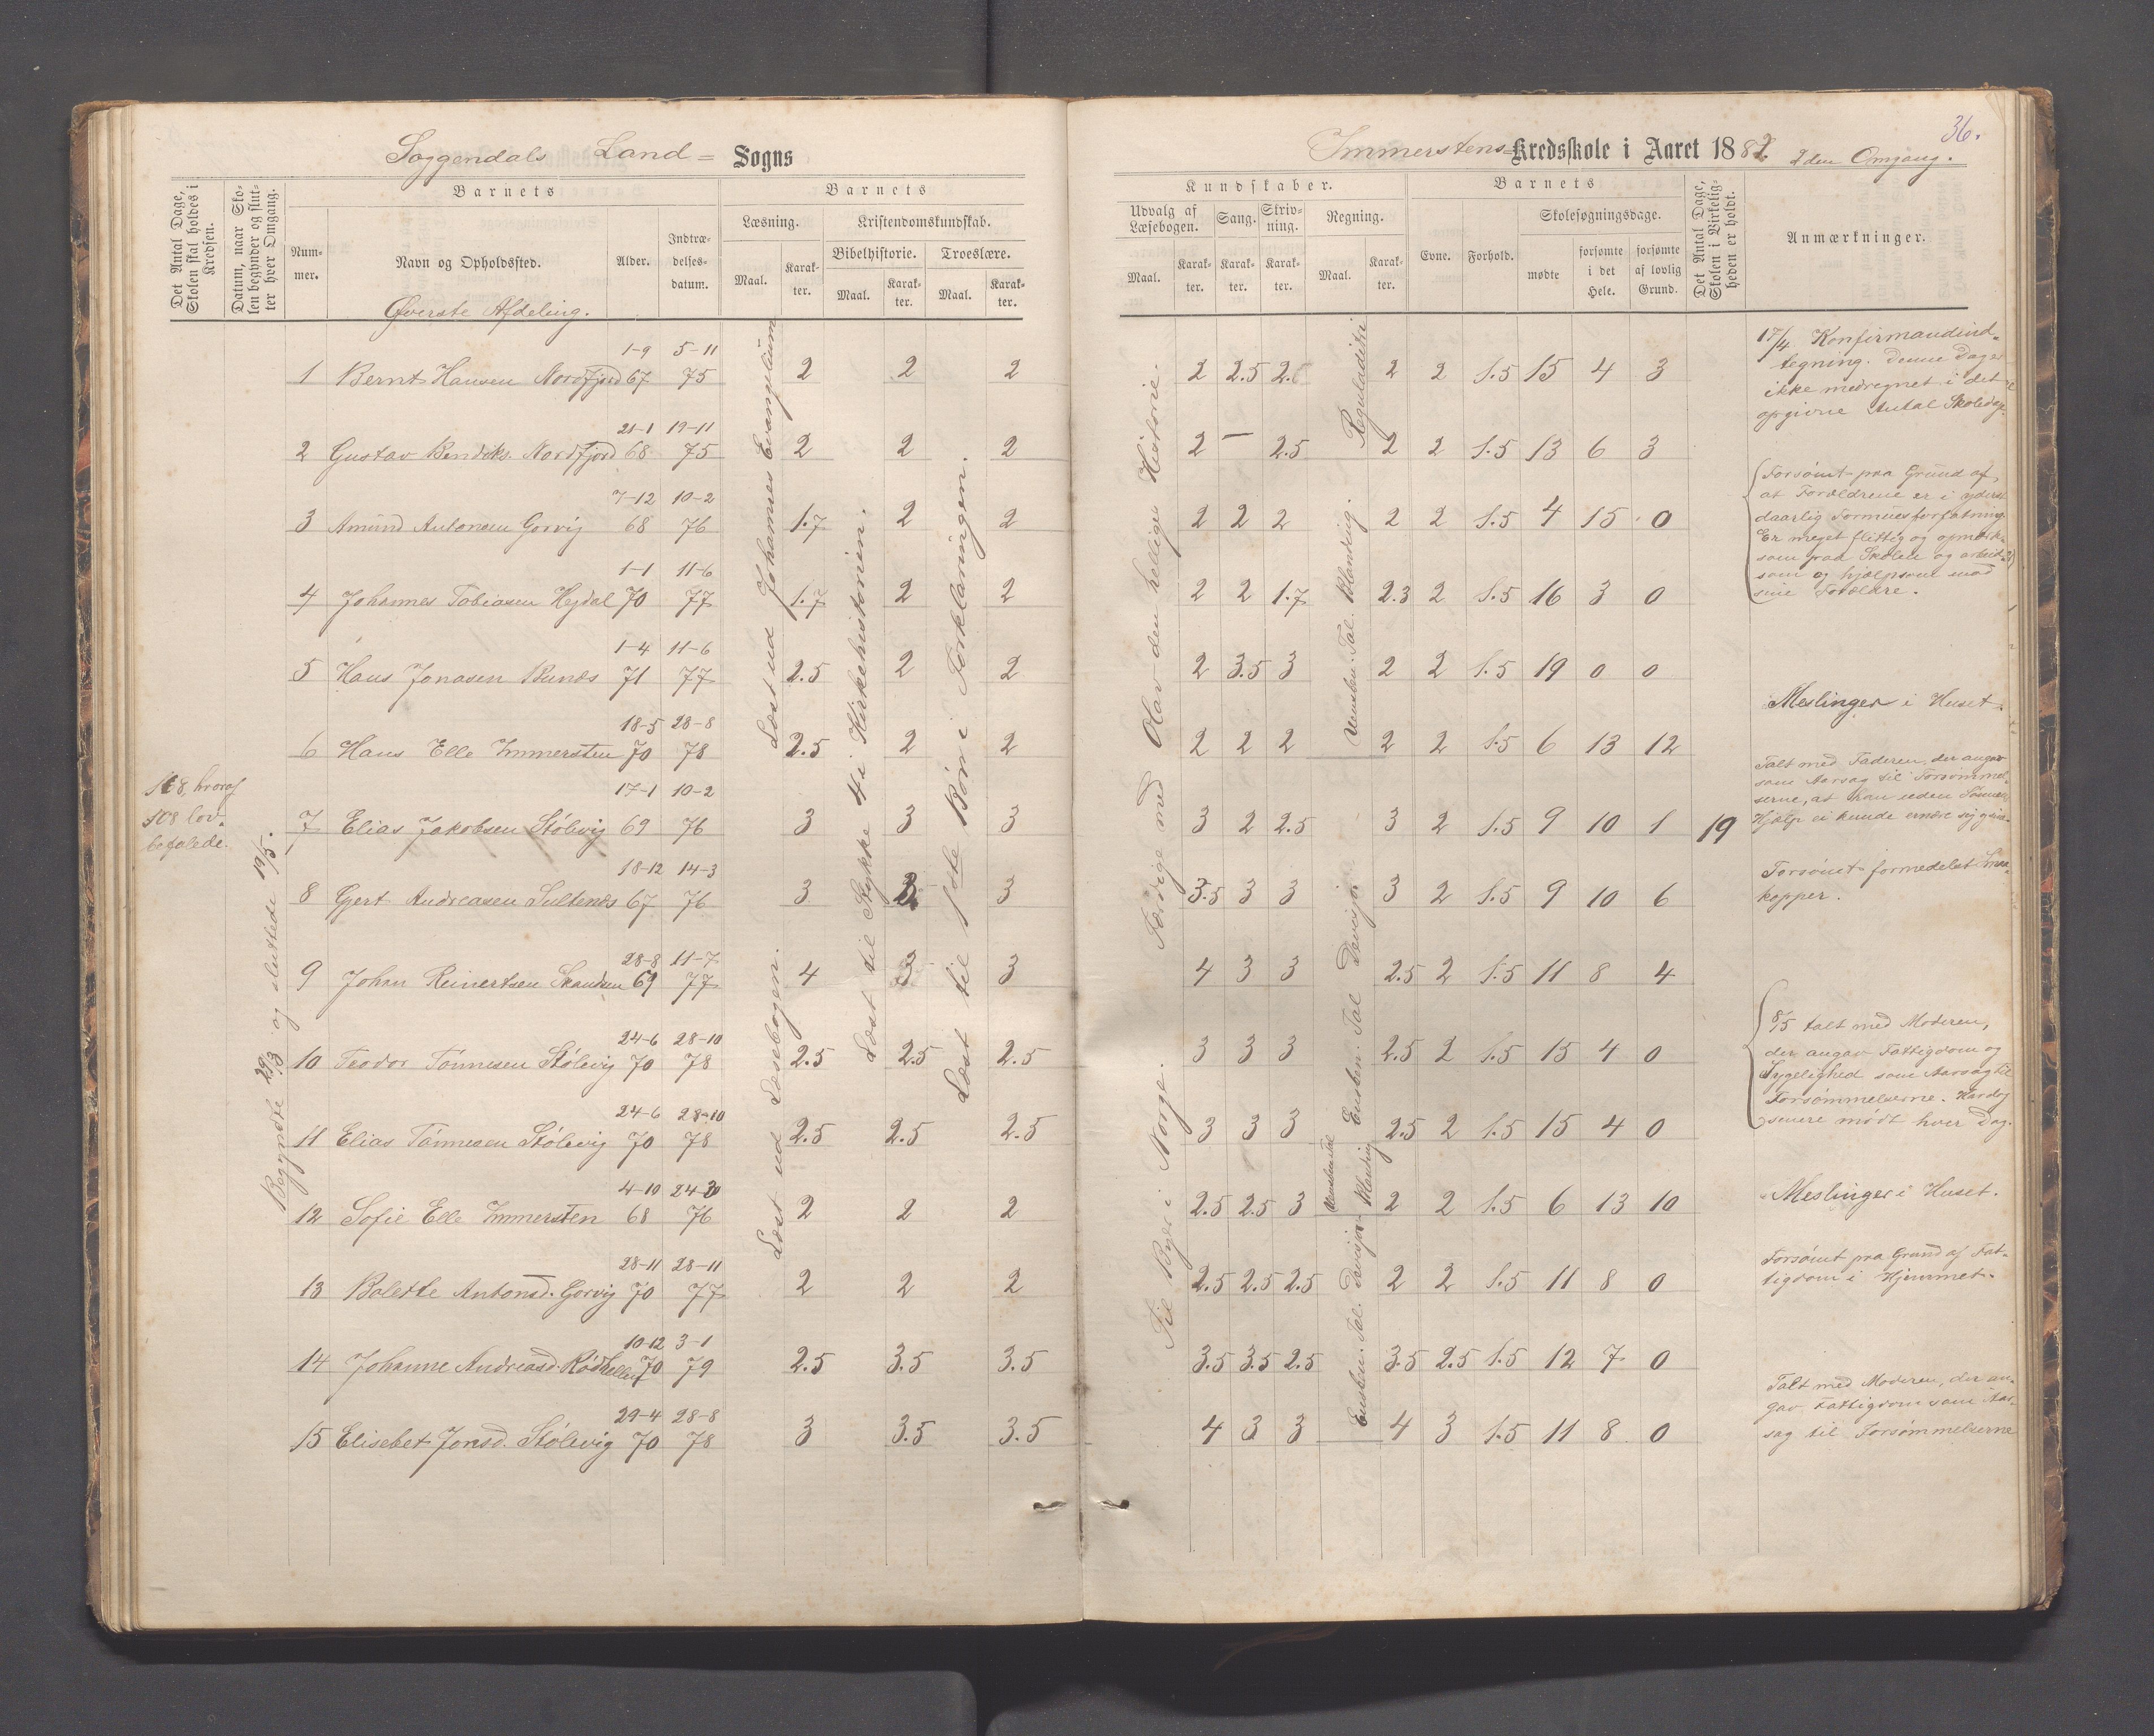 36.
Soggendals Land= Sogns
Immerstens= Kredsskole i Aaret 1882. 2den Omgang.
Det Antal Dage, Skolen skal holdes i Kredsen.
Datum, naar Skolen begynder og slutter hver Omgang.
Barnets
Nummer.
Navn og Opholdssted.
Alder.
Indtrædelsesdatum.
Barnets
Læsning.
Maal.
Karakter.
Kristendomskundskab.
Bibelhistorie.
Maal.
Karakter.
Troeslære.
Maal.
Karakter.
Kundskaber.
Udvalg af Læsebogen.
Maal.
Karakter.
Sang.
Karakter.
Skrivning.
Karakter.
Regning.
Maal.
Karakter.
Barnets
Evne.
Forhold.
Skolesøgningsdage.
mødte
forsømte i det Hele.
forsømte af lovlig Grund.
Det Antal Dage, Skolen i Virkeligheden er holdt.
Anmærkninger.
Øverste Afdeling.
1-9 5-11
1 Bernt Hansen Nordfjord 67 75 2 2 2 2 2.5 2.5 2 2 1.5 15 4 3
21-1 19-11
2 Gustav Bendiks. Nordfjord 68 75 2 2 2 2 — 2.5 2 2 1.5 13 6 3
7-12 10-2
3 Amund Antonsen Gorvig 68 76 1.7 2 2 2 2 2 2 2 1.5 4 15 0
1-1 11-6
4 Johannes Tobiasen Hejdal 70 77 1.7 2 2 2 2 1.7 2.3 2 1.5 16 3 0
1-4 11-6
5 Hans Jonasen Runæs 71 77 2.5 2 2 2 3.5 3 2 2 1.5 19 0 0
18-5 28-8
6 Hans Elle Immersten 70 78 2.5 2 2 2 2 2 2 2 1.5 6 13 12
17-1 10-2
7 Elias Jakobsen Stølevig 69 76 3 3 3 3 2 2.5 3 2 1.5 9 10 1 19
18-12 14-3
8 Gjert Andreasen Sultenæs 67 76 3 3 3 3.5 3 3 3 2 1.5 9 10 6
28-8 11-7
9 Johan Reinertsen 69 77 4 3 3 4 3 3 2.5 2 1.5 11 8 4
24-6 28-10
10 Teodor Tönnesen Stølevig 70 78 2.5 2.5 2.5 3 3 3 2.5 2 1.5 15 4 0
24-6 28-10
11 Elias Tönnesen Stølevig 70 78 2.5 2.5 2.5 3 3 3 2.5 2 1.5 15 4 0
4-10
12 Sofie Elle Immersten 68 76 2 2 2 2.5 2.5 3 2 2 1.5 6 13 10
28-11 28-11
13 Bolette Antonsd. Gorvig 70 77 2 2 2 2.5 2.5 2.5 2 2 1.5 11 8 0
10-12 3-1
14 Johanne Andreasd. 70 79 2.5 3.5 3.5 3.5 3.5 2.5 3.5 2.5 1.5 12 7 0
29-4 28-8
15 Elisebet Jonsd. Stølevig 70 78 3 3.5 3.5 4 3 3 4 3 1.5 11 8 0
hvoraf
108 lov-
befalede.
Begyndte 29/3 og sluttede 19/5.
Læst ud Johannes Evangelium
Læst ud Læsebogen.
Læst til Stykke 4 i Kirkehistorien.
Læst til 1ste Bön i Forklaringen.
Færdige med Olav den hellige Historie.
Til Byer i Norge.
Reguladetri
Uensben. Tal. Blanding.
Ensben. Tal Division
Ensben. Tal. Division
17/4 Konfirmandind-
tegning. Denne Dag er
ikke medregnet i det
opgivne Antal Skoledage
Forsømt paa Grund af,
at Forældrene er i yderst
daarlig Formuesforfatning.
Er meget flittig og opmærk-
som paa Skolen og arbeid-
som og hjælpsom mod
sine Forældre.
Meslinger i Huset.
Talt med Faderen, der angav
som Aarsag til Forsømmel-
serne, at han uden Sønnens
Hjælp ei kunde
Forsømt formedelst Smaa-
kopper.
8/5 talt med Moderen,
der angav Fattigdom og
Sygelighed som Aarsag til
Forsømmelserne. Har dog
senere mødt hver Dag.
Meslinger i Huset.
Forsømt paa Grund af Fat-
tigdom i Hjemmet.
Talt med Moderen, der an-
gav Fattigdom som Aar-
sag til Forsømmelserne